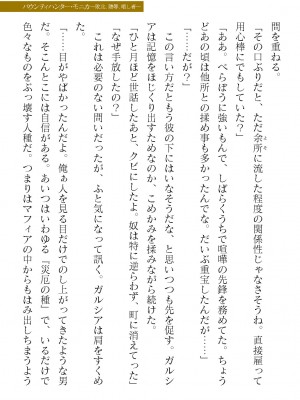 バウンティハンター・モニカ
問を重ねる。
「その口ぶりだと、ただ余所に流した程度の関係性じゃなさそうね。直接雇って
用心棒にでもしていた?」
「ああ。べらぼうに強いもんで、しばらくうちで喧嘩の先鋒を務めてた。ちょう
どあの頃は他所との揉め事も多かったんでな。だいぶ重宝したんだが――」
「…だが?」
この言い方だともう彼の下にはいなそうだな、と思いつつも先を促す。ガルシ
アは記憶をほじくり出すためなのか、こめかみを揉みながら続けた。
「ひと月ほど世話したあと、クビにしたよ。奴は特に逆らわず、町に消えてった」
「なぜ手放したの?」
これは必要のない問いだったが、ふと気になって訊く。ガルシアは肩をすくめ
「……目がやばかったんだよ。俺ぁ人を見る目だけでのし上がってきたような男
だ。そこんとこには自信がある。あいつはいわゆる『災厄の種』で、いるだけで
色々なものをぶっ壊す人種だ。つまりはマフィアの枠からもはみ出しちまうよう